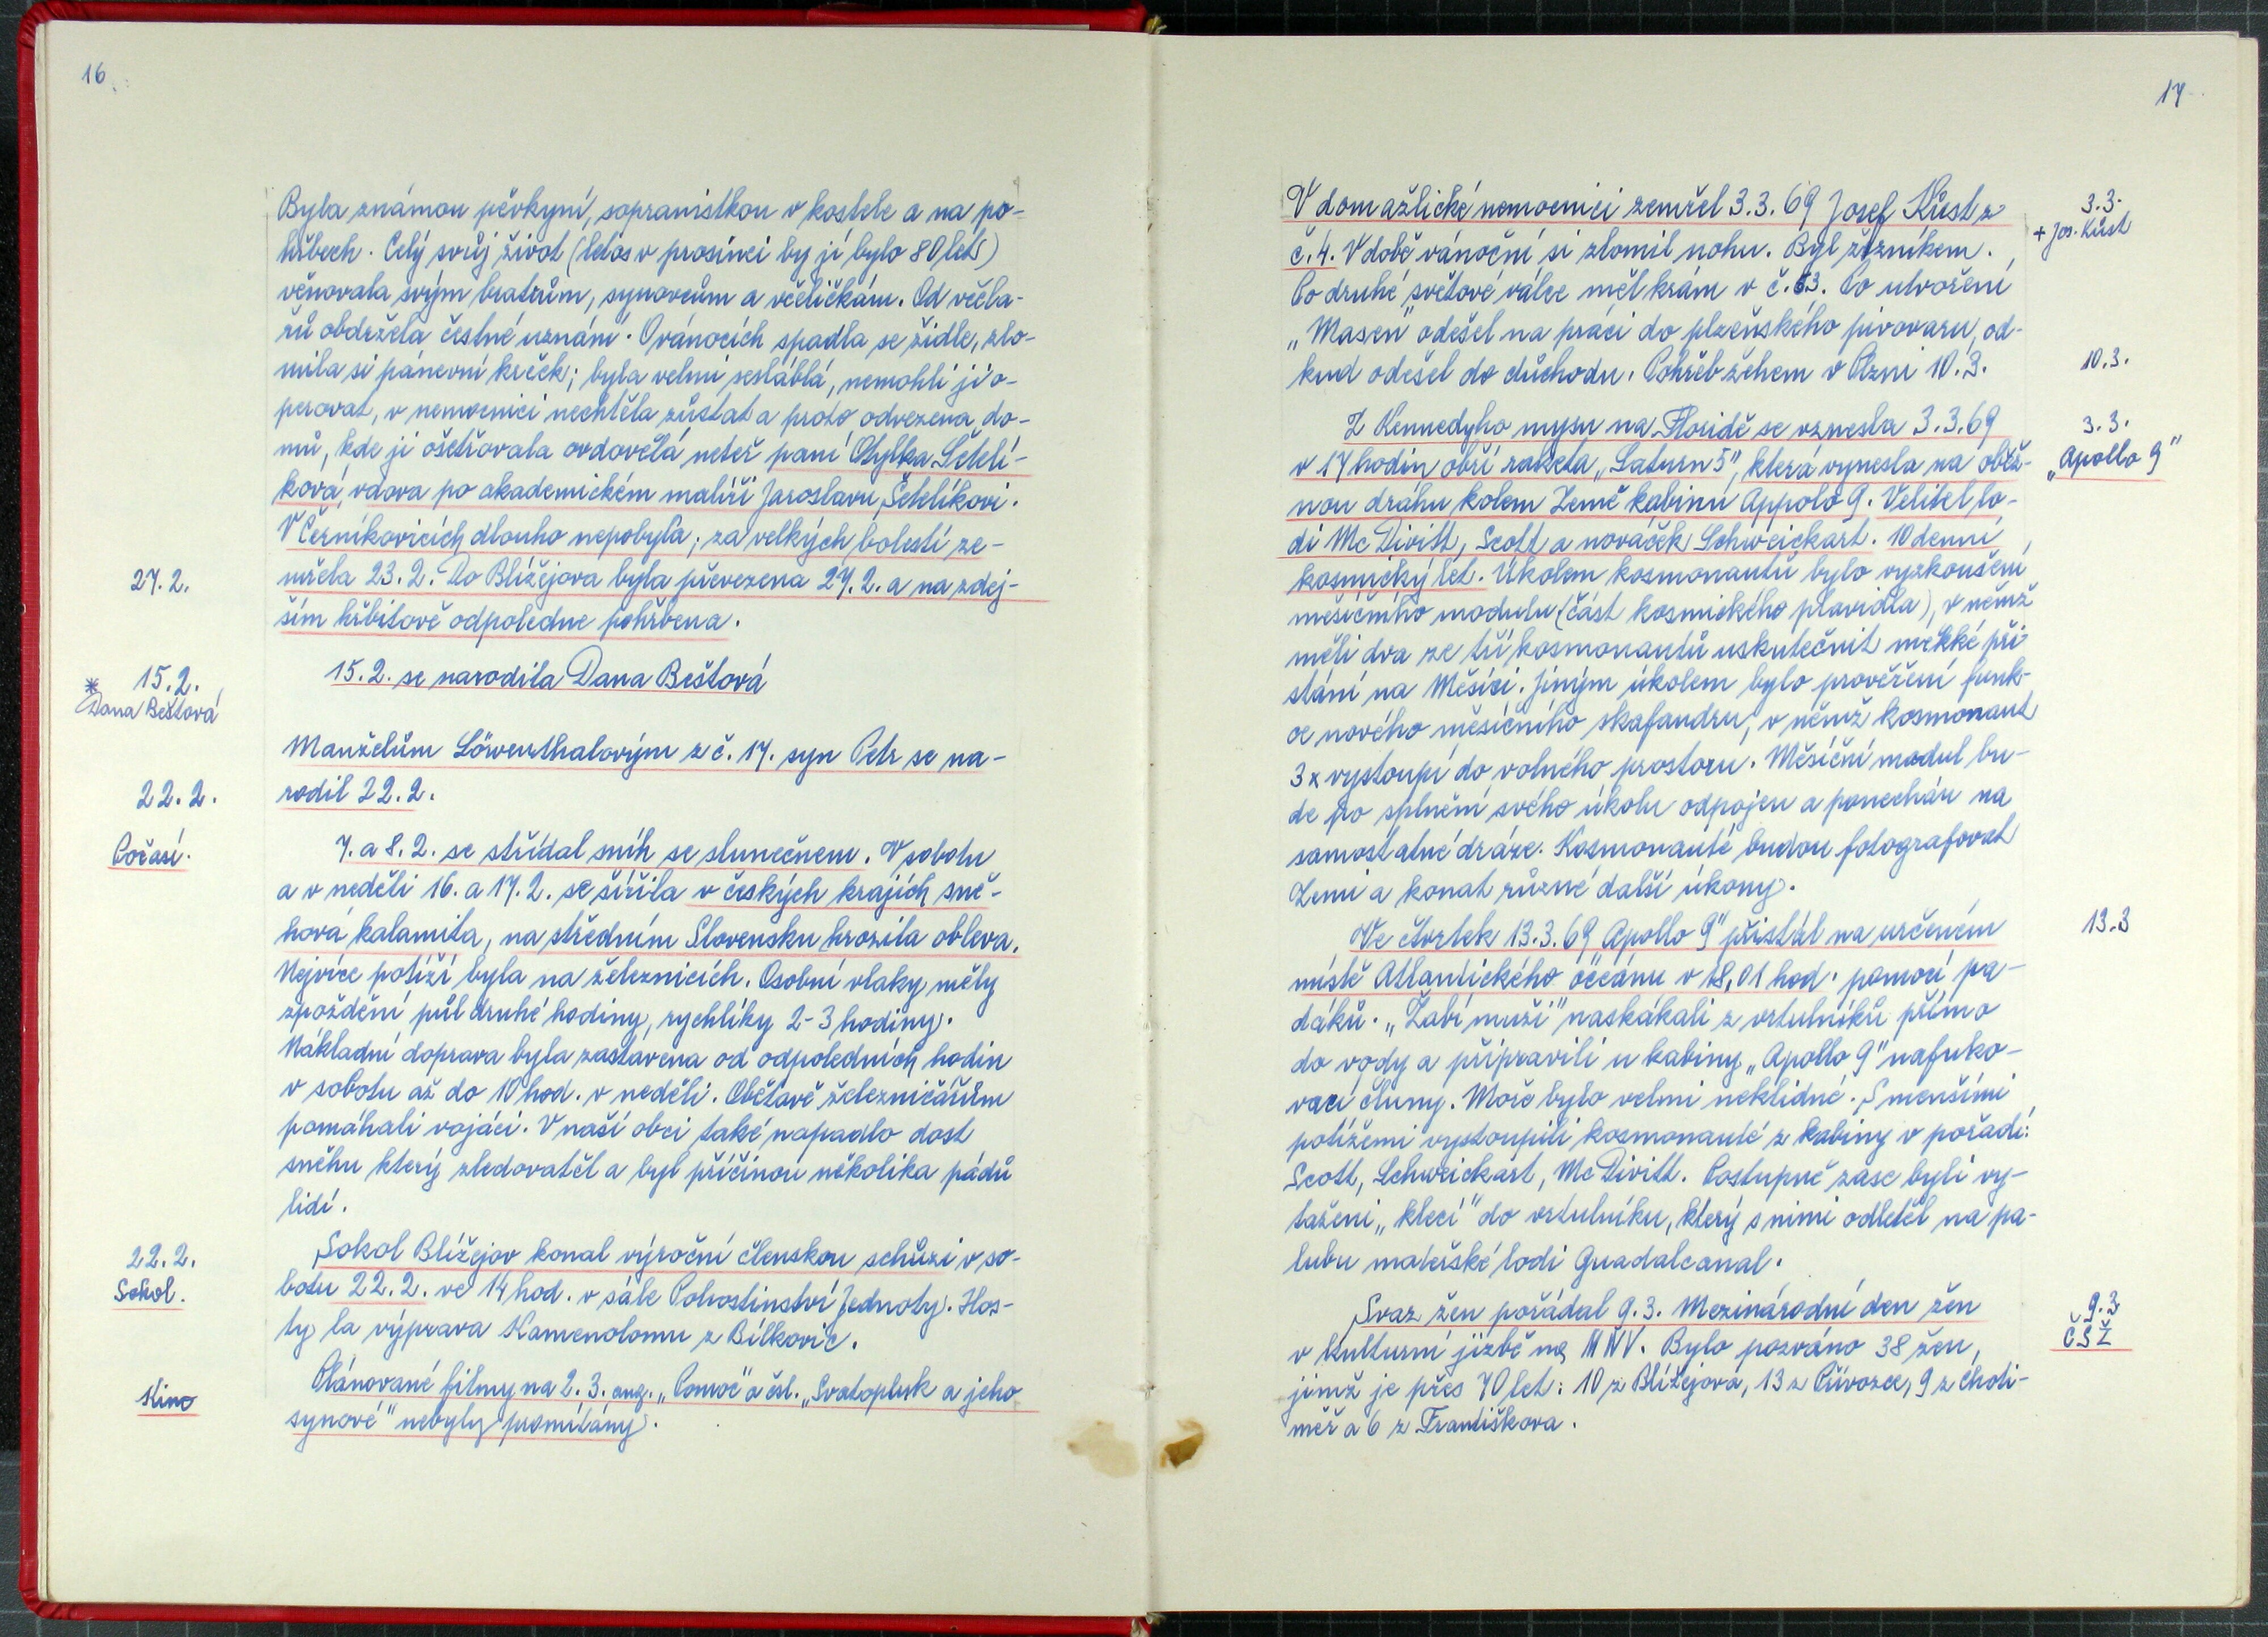 16
Byla známou pěvkyní, sopranistkou v kostele a na po-
hřbech. Celý svůj život (letos v prosinci by jí bylo 80 let)
věnovala svým bratrům, synovcům a včeličkám. Od včela-
řů obdržela čestné uznání. O vánocích spadla se židle, zlo-
mila si pánevní krček; byla velmi sesláblá, nemohli ji o-
perovat, v nemocnici nechtěla zůstat a proto odvezena do-
mů, kde ji ošetřovala ovdovělá neteř paní Otylka Šetelí-
ková, vdova po akademickém malíři Jaroslavu Šetelíkovi.
V Černíkovicích dlouho nepobyla; za velkých bolestí ze-
27.2.
mřela 23.2. Do Blížejova byla převezena 27.2. a na zdej-
ším hřbitově odpoledne pohřbena.
15.2.
* Dana Beštová
15.2. se narodila Dana Beštová
Manželům Löwenthalovým z č. 17. syn Petr se na-
22.2.
rodil 22.2.
Počasí.
7. a 8.2. se střídal sníh se slunečnem. V sobotu
a v neděli 16. a 17.2. se šířila v českých krajích sně-
hová kalamita, na středním Slovensku hrozila obleva.
Nejvíce potíží byla na železnicích. Osobní vlaky měly
zpoždění půl druhé hodiny, rychlíky 2-3 hodiny.
Nákladní doprava byla zastavena od odpoledních hodin
v sobotu až do 10 hod. v neděli. Obětavě železničářům
pomáhali vojáci. V naší obci také napadlo dost
sněhu který zledovatěl a byl příčinou několika pádů
lidí.
22.2.
Sokol.
Sokol Blížejov konal výroční členskou schůzi v so-
botu 22.2. ve 14 hod. v sále Pohostinství Jednoty. Hos-
ty la výprava Kamenolomu z Bílkovic.
Kino
Plánované filmy na 2.3. ang. „Pomoc" a čsl. „Svatopluk a jeho
synové" nebyly promítány.
17
V domažlické nemocnici zemřel 3.3.69 Josef Kůst z
3.3.
+ Jos. Kůst
č. 4. V době vánoční si zlomil nohu. Byl řezníkem.
Po druhé světové válce měl krám v č. 63. Po utvoření
„Masen" odešel na práci do plzeňského pivovaru, od-
kud odešel do důchodu. Pohřeb žehem v Plzni 10.3.
10.3.
Z Kennedyho mysu na Floridě se vznesla 3.3.69
3.3.
„Apollo 9"
v 17 hodin obří raketa „Saturn 5", která vynesla na oběž-
nou dráhu kolem Země kabinu Appolo 9. Velitel lo-
di Mc Divitt, Scott a nováček Schweickart. 10 denní
kosmický let. Úkolem kosmonautů bylo vyzkoušení
měsíčního modulu (část kosmického plavidla), v němž
měli dva ze tří kosmonautů uskutečnit měkké při
stání na Měsíci. Jiným úkolem bylo prověření funk-
ce nového měsíčního skafandru, v němž kosmonaut
3x vystoupí do volného prostoru. Měsíční modul bu-
de po splnění svého úkolu odpojen a ponechán na
samostatné dráze. Kosmonauté budou fotografovat
Zemi a konat různé další úkony.
Ve čtvrtek 13.3.69 Apollo 9" přistál na určeném
13.3
místě Atlantického oceánu v 18,01 hod. pomocí pa-
dáků. „Žabí muži" naskákali z vrtulníků přímo
do vody a připravili u kabiny „Apollo 9" nafuko-
vací čluny. Moře bylo velmi neklidné. S menšími
potížemi vystoupili kosmonauté z kabiny v pořadí:
Scott, Schweickart, Mc Divitt. Postupně zase byli vy-
taženi „klecí" do vrtulníku, který s nimi odletěl na pa-
lubu mateřské lodi Guadalcanal.
Svaz žen pořádal 9.3. Mezinárodní den žen
9.3
ČSŽ
v kulturní jizbě MNV. Bylo pozváno 38 žen,
jimž je přes 70 let: 10 z Blížejova, 13 z Přívozce, 9 z Choti-
měř a 6 z Františkova.